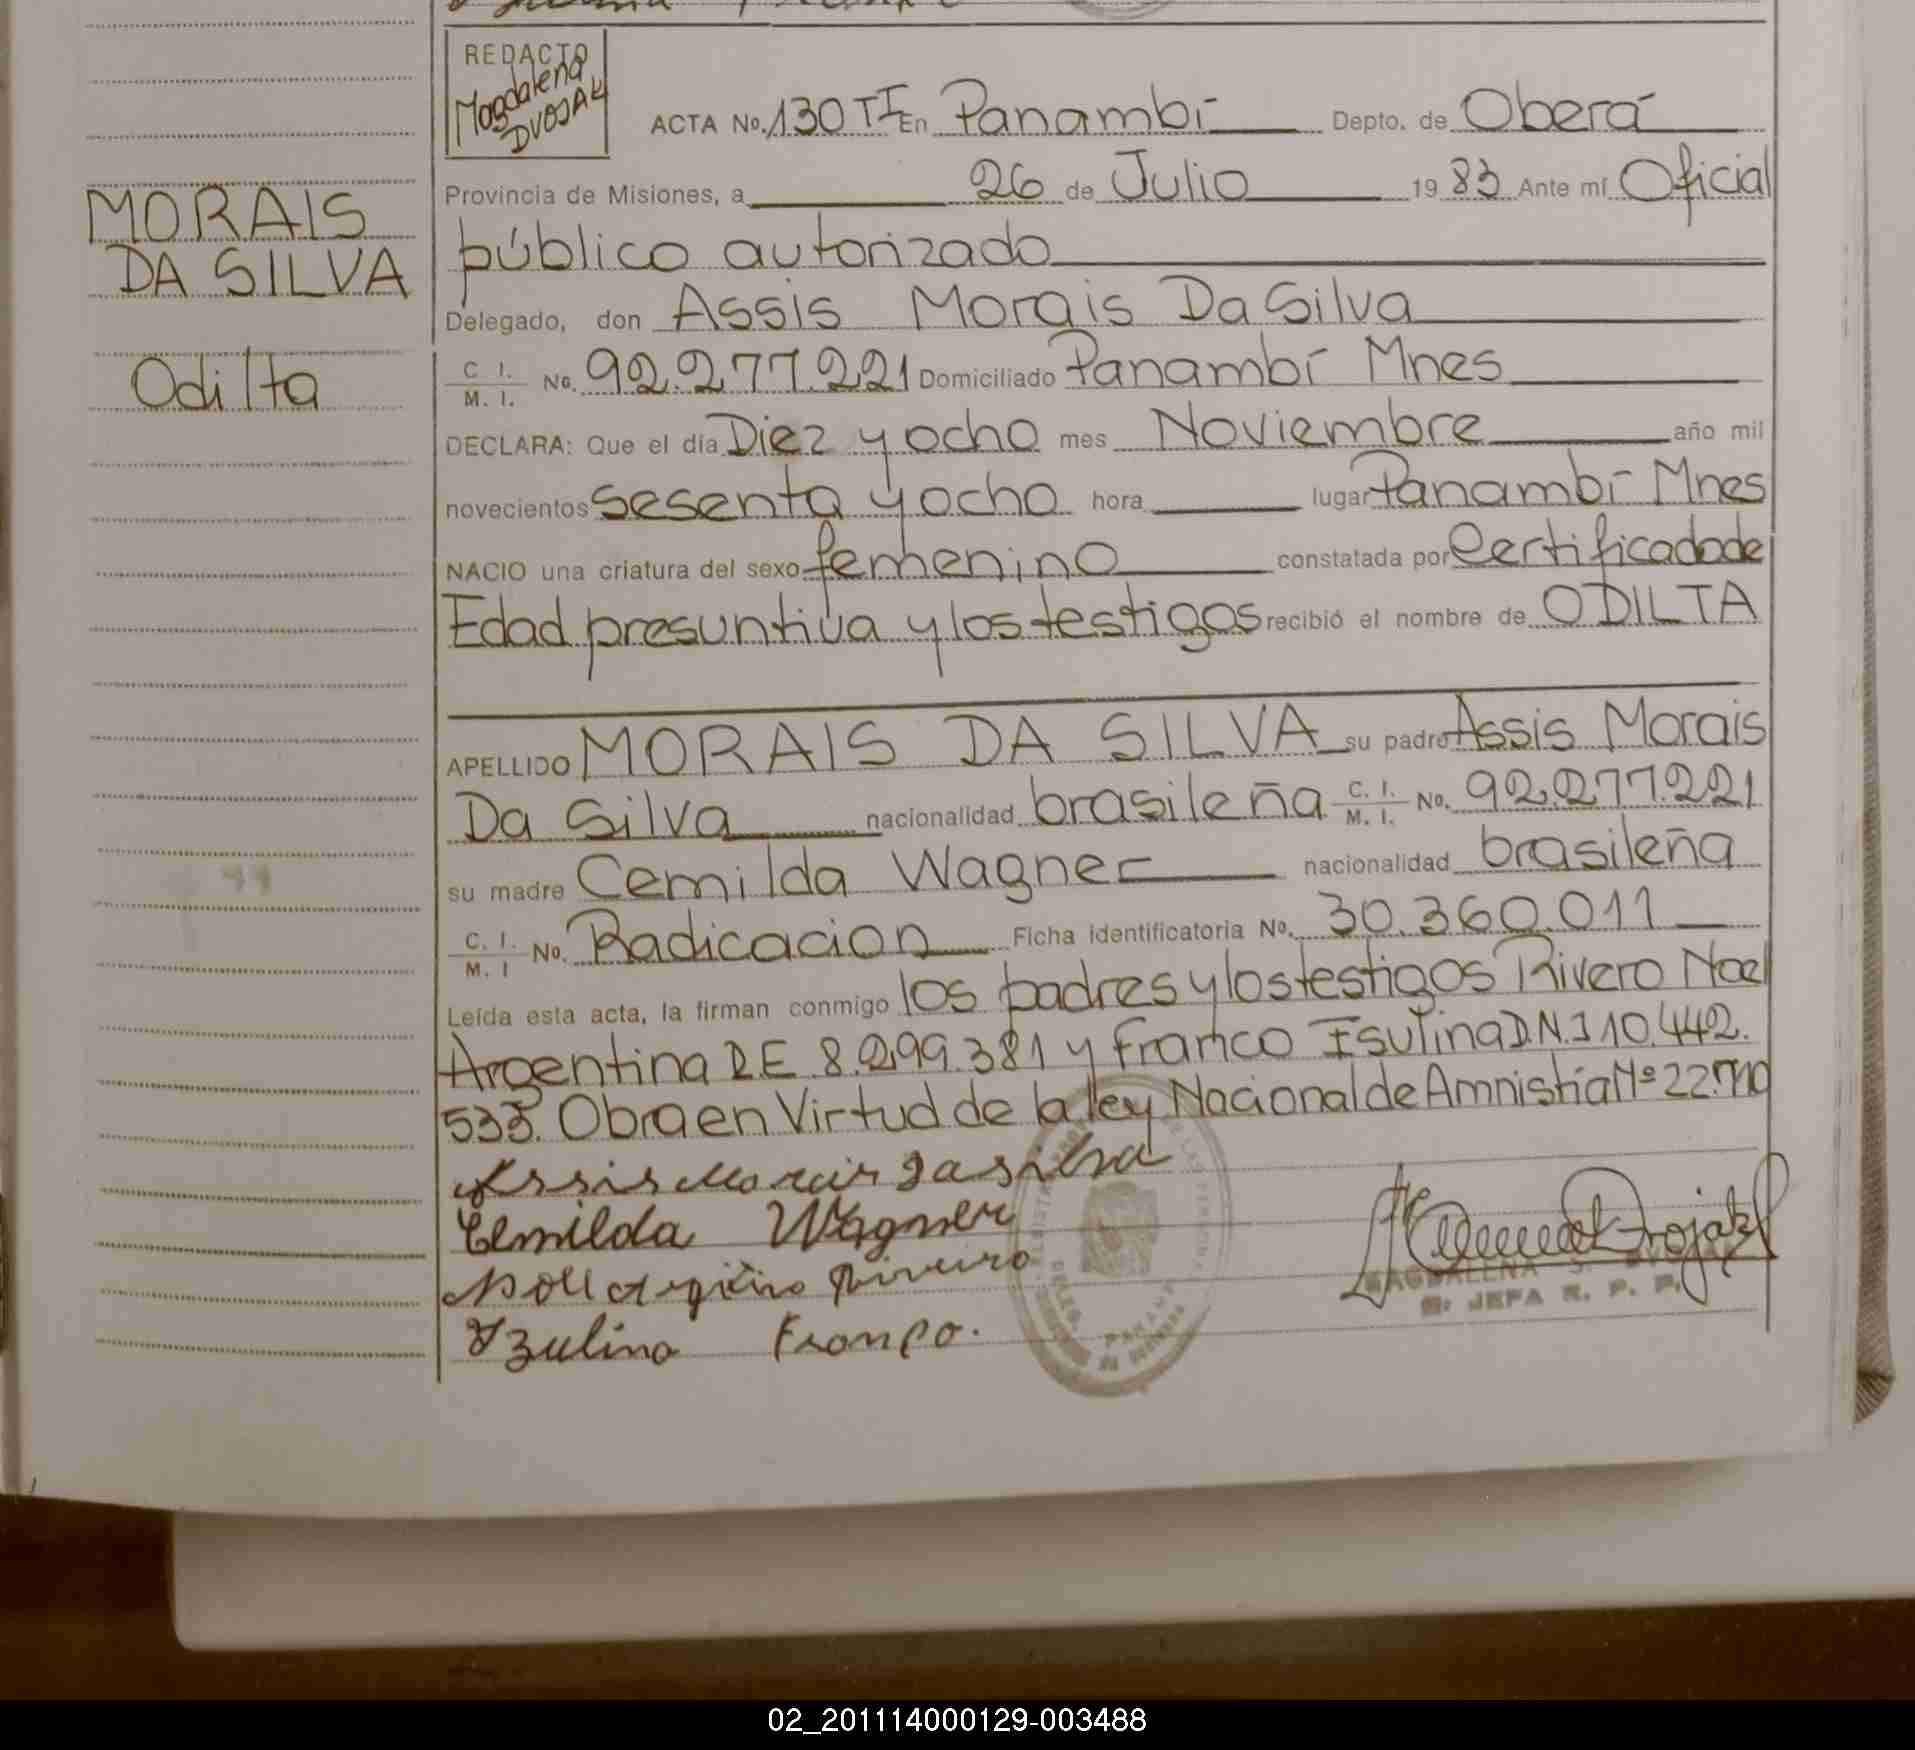 REDACTO
Magdalena
DVOJAK
ACTA No. 130 TI En Panambí Depto. de Oberá
Provincia de Misiones, a 26 de Julio 1983 Ante mí Oficial
público autorizado
MORAIS
DA SILVA
Odilta
Delegado, don Assis Morais Da Silva
C. I. / M. I. No. 92.277.221 Domiciliado Panambí Mnes
DECLARA: Que el día Diez y ocho mes Noviembre año mil
novecientos sesenta y ocho hora lugar Panambí Mnes
NACIO una criatura del sexo femenino constatada por Certificado de
Edad presuntiva y los testigos recibió el nombre de ODILTA
APELLIDO MORAIS DA SILVA su padre Assis Morais
Da Silva nacionalidad brasileña C. I. / M. I. No. 92.277.221
su madre Cemilda Wagner nacionalidad brasileña
C. I. / M. I No. Radicacion Ficha identificatoria No. 30.360.011
Leída esta acta, la firman conmigo los padres y los testigos Rivero Noel
Argentina D.E 8.299.381 y Franco Isulina D.N.I 10.442.
533. Obra en Virtud de la ley Nacional de Amnistía Nº
Assis Morais da silva
Cemilda Wagner
Rivero
Izulina Franco.
MAGDALENA S.
JEFA R. P. P.
PANAMBI
02_201114000129-003488